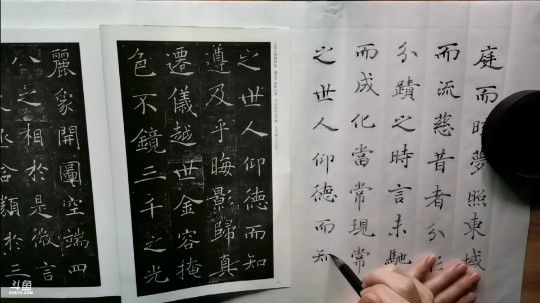 庭而皎夢照東域
而流慈昔者分
分蹟之時言未馳
而成化當常現常
之世人仰德而知
之世人仰德而知
遵及乎晦影歸真
遷儀越世金容掩
色不鏡三千之光
麗象開圖空端四
八之相於是微言
含類於三
斗鱼
DOUYU.COM